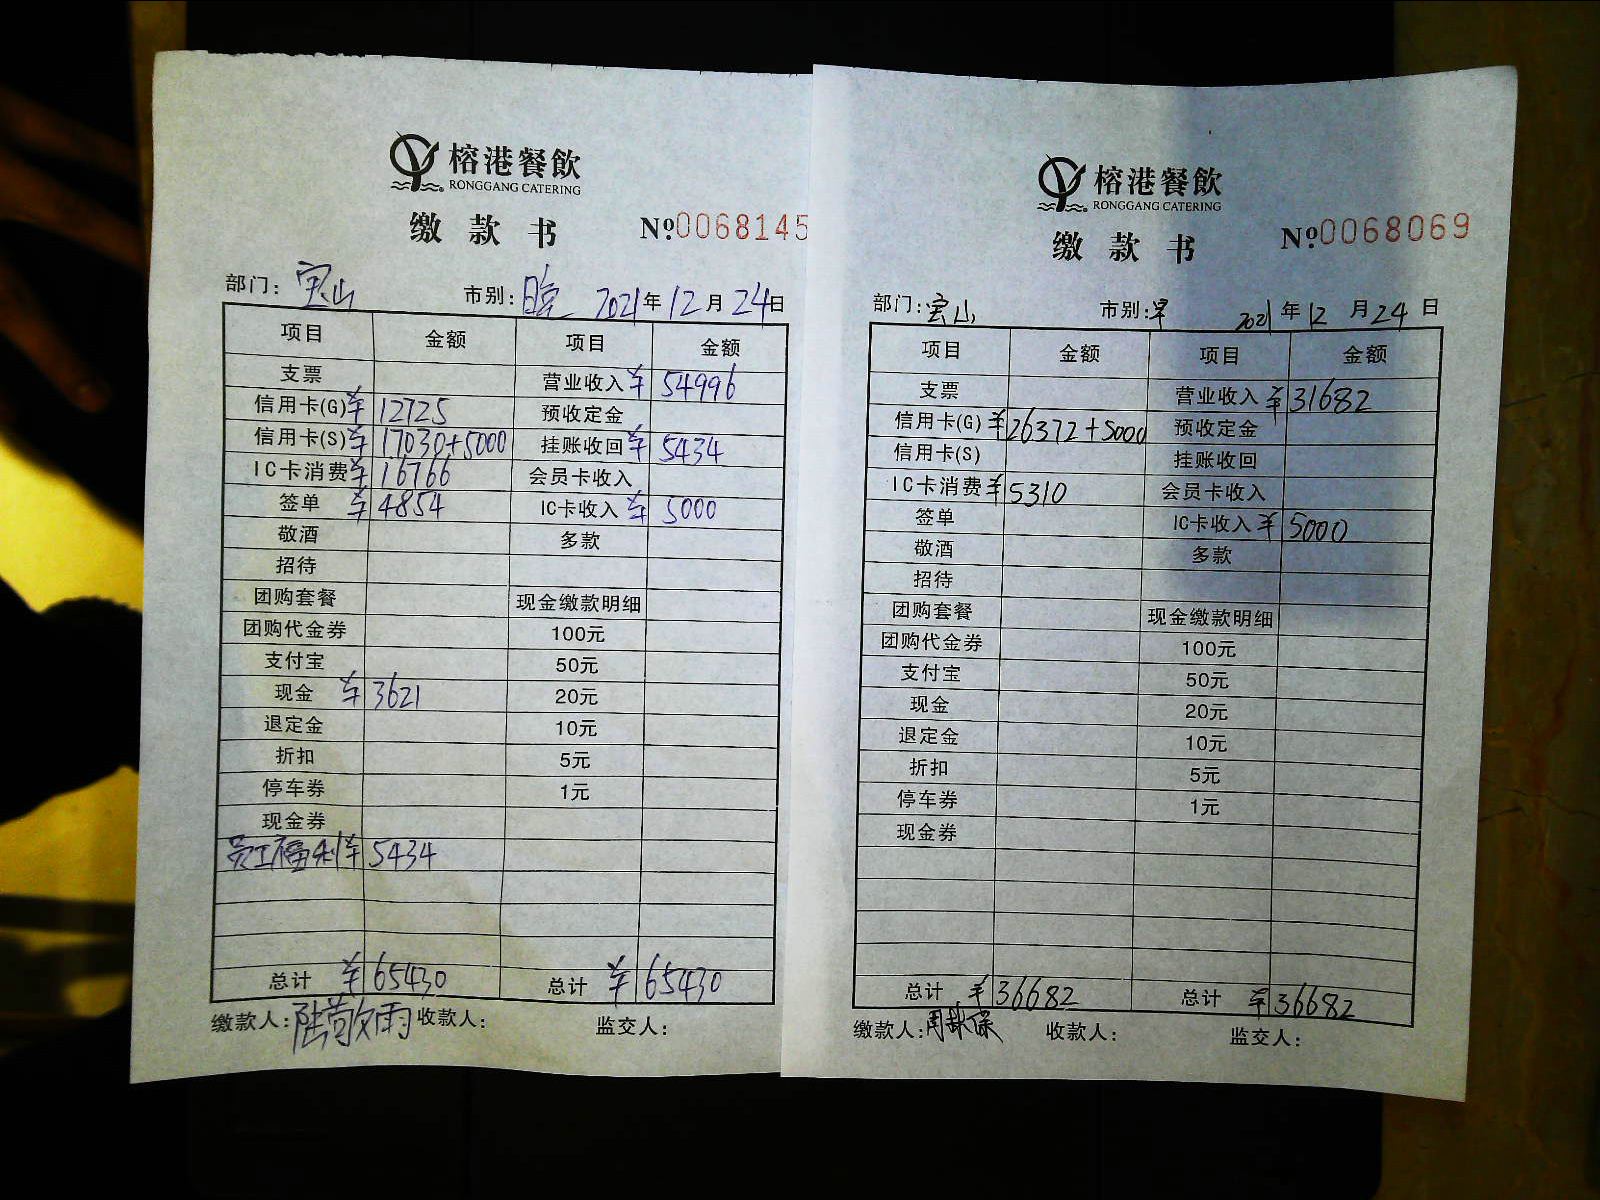 榕港餐飲
RONGGANG CATERING
缴款书 №0068145
部门: 宝山 市别: 晚 2021年12月24日
项目 金额 项目 金额
支票 营业收入 ¥54996
信用卡(G) ¥12725 预收定金
信用卡(S) ¥17030+5000 挂账收回 ¥5434
IC卡消费 ¥16766 会员卡收入
签单 ¥4854 IC卡收入 ¥5000
敬酒 多款
招待
团购套餐 现金缴款明细
团购代金券 100元
支付宝 50元
现金 ¥3621 20元
退定金 10元
折扣 5元
停车券 1元
现金券
员工福利 ¥5434
总计 ¥65430 总计 ¥65430
缴款人: 陆敬雨 收款人: 监交人:
榕港餐飲
RONGGANG CATERING
缴款书 №0068069
部门: 宝山 市别: 早 2021年12月24日
项目 金额 项目 金额
支票 营业收入 ¥31682
信用卡(G) ¥26372+5000 预收定金
信用卡(S) 挂账收回
IC卡消费 ¥5310 会员卡收入
签单 IC卡收入 ¥5000
敬酒 多款
招待
团购套餐 现金缴款明细
团购代金券 100元
支付宝 50元
现金 20元
退定金 10元
折扣 5元
停车券 1元
现金券
总计 ¥36682 总计 ¥36682
缴款人: 收款人: 监交人: